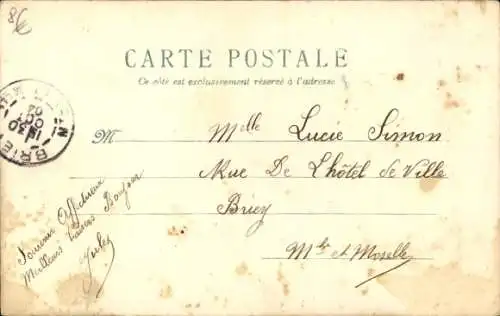 CARTE POSTALE
Ce côté est exclusivement réservé à l'adresse
M
Melle Lucie Simon
Rue De L'hôtel de Ville
Briey
Mthe et Moselle
Souvenir Affectueux
Meilleurs baisers Bonjour
Jules
BRIEY